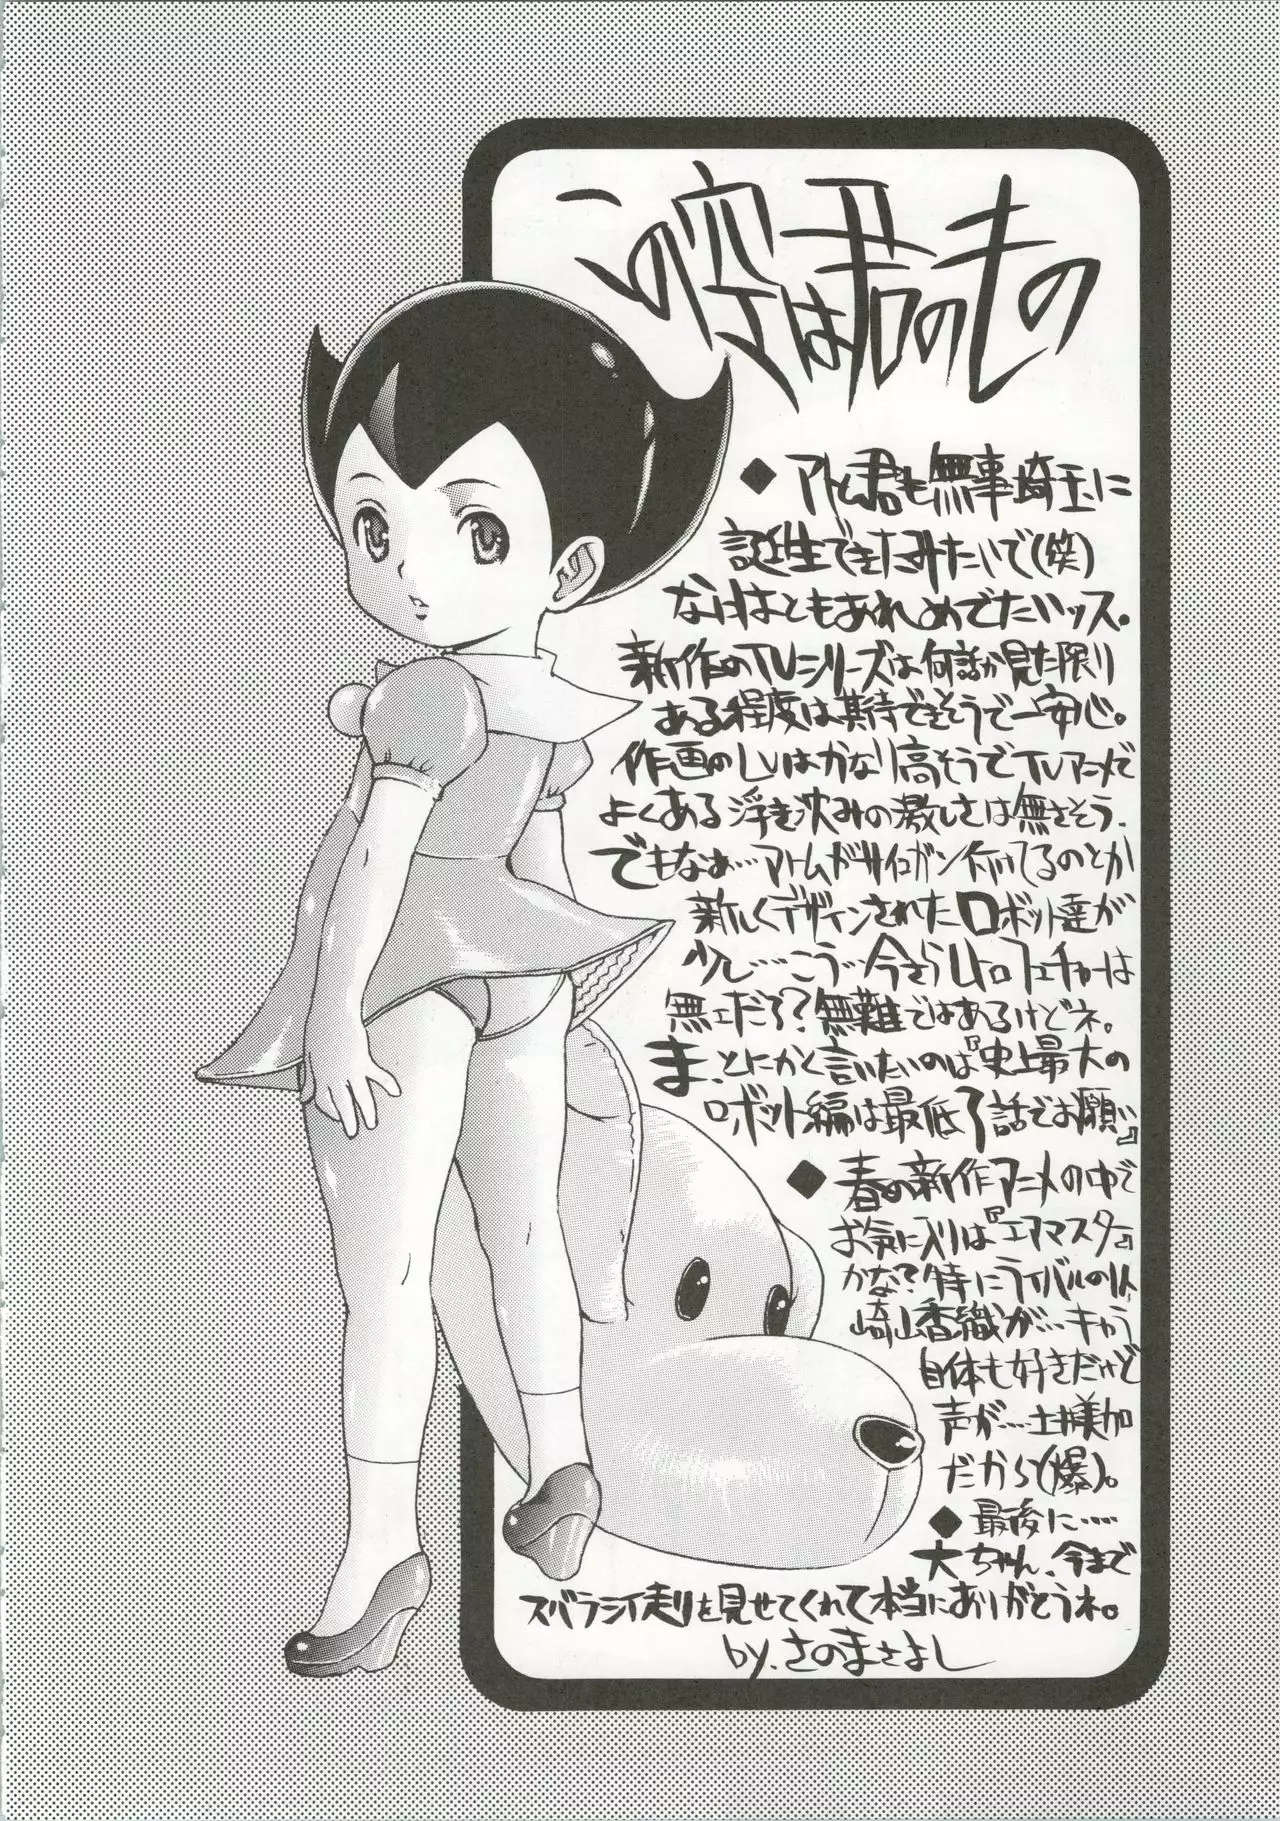 この空は君のもの
◆アトム君も無事埼玉に
誕生できたみたいで(笑)
なにはともあれめでたいッス。
新作のTVシリーズは何話か見た限り
ある程度は期待できそうで一安心。
作画のLvはかなり高そうでTVアニメで
よくある浮き沈みの激しさは無さそう、
でもなぁ…アトムがサイコガン付けてるのとか
新しくデザインされたロボット達が
少し……こう…今さらレトロフューチャーは
無ェだろ?無難ではあるけどネ。
ま、とにかく言いたいのは『史上最大の
ロボット編は最低7話でお願い』
◆春の新作アニメの中で
お気に入りは『エアマスター』
かな?特にライバルの1人
崎山香織が…キャラ
自体も好きだけど
声が…土井美加
だから(爆)。
◆最後に……
大ちゃん、今まで
スバラシイ走りを見せてくれて本当にありがとうネ。
by.さのまさよし